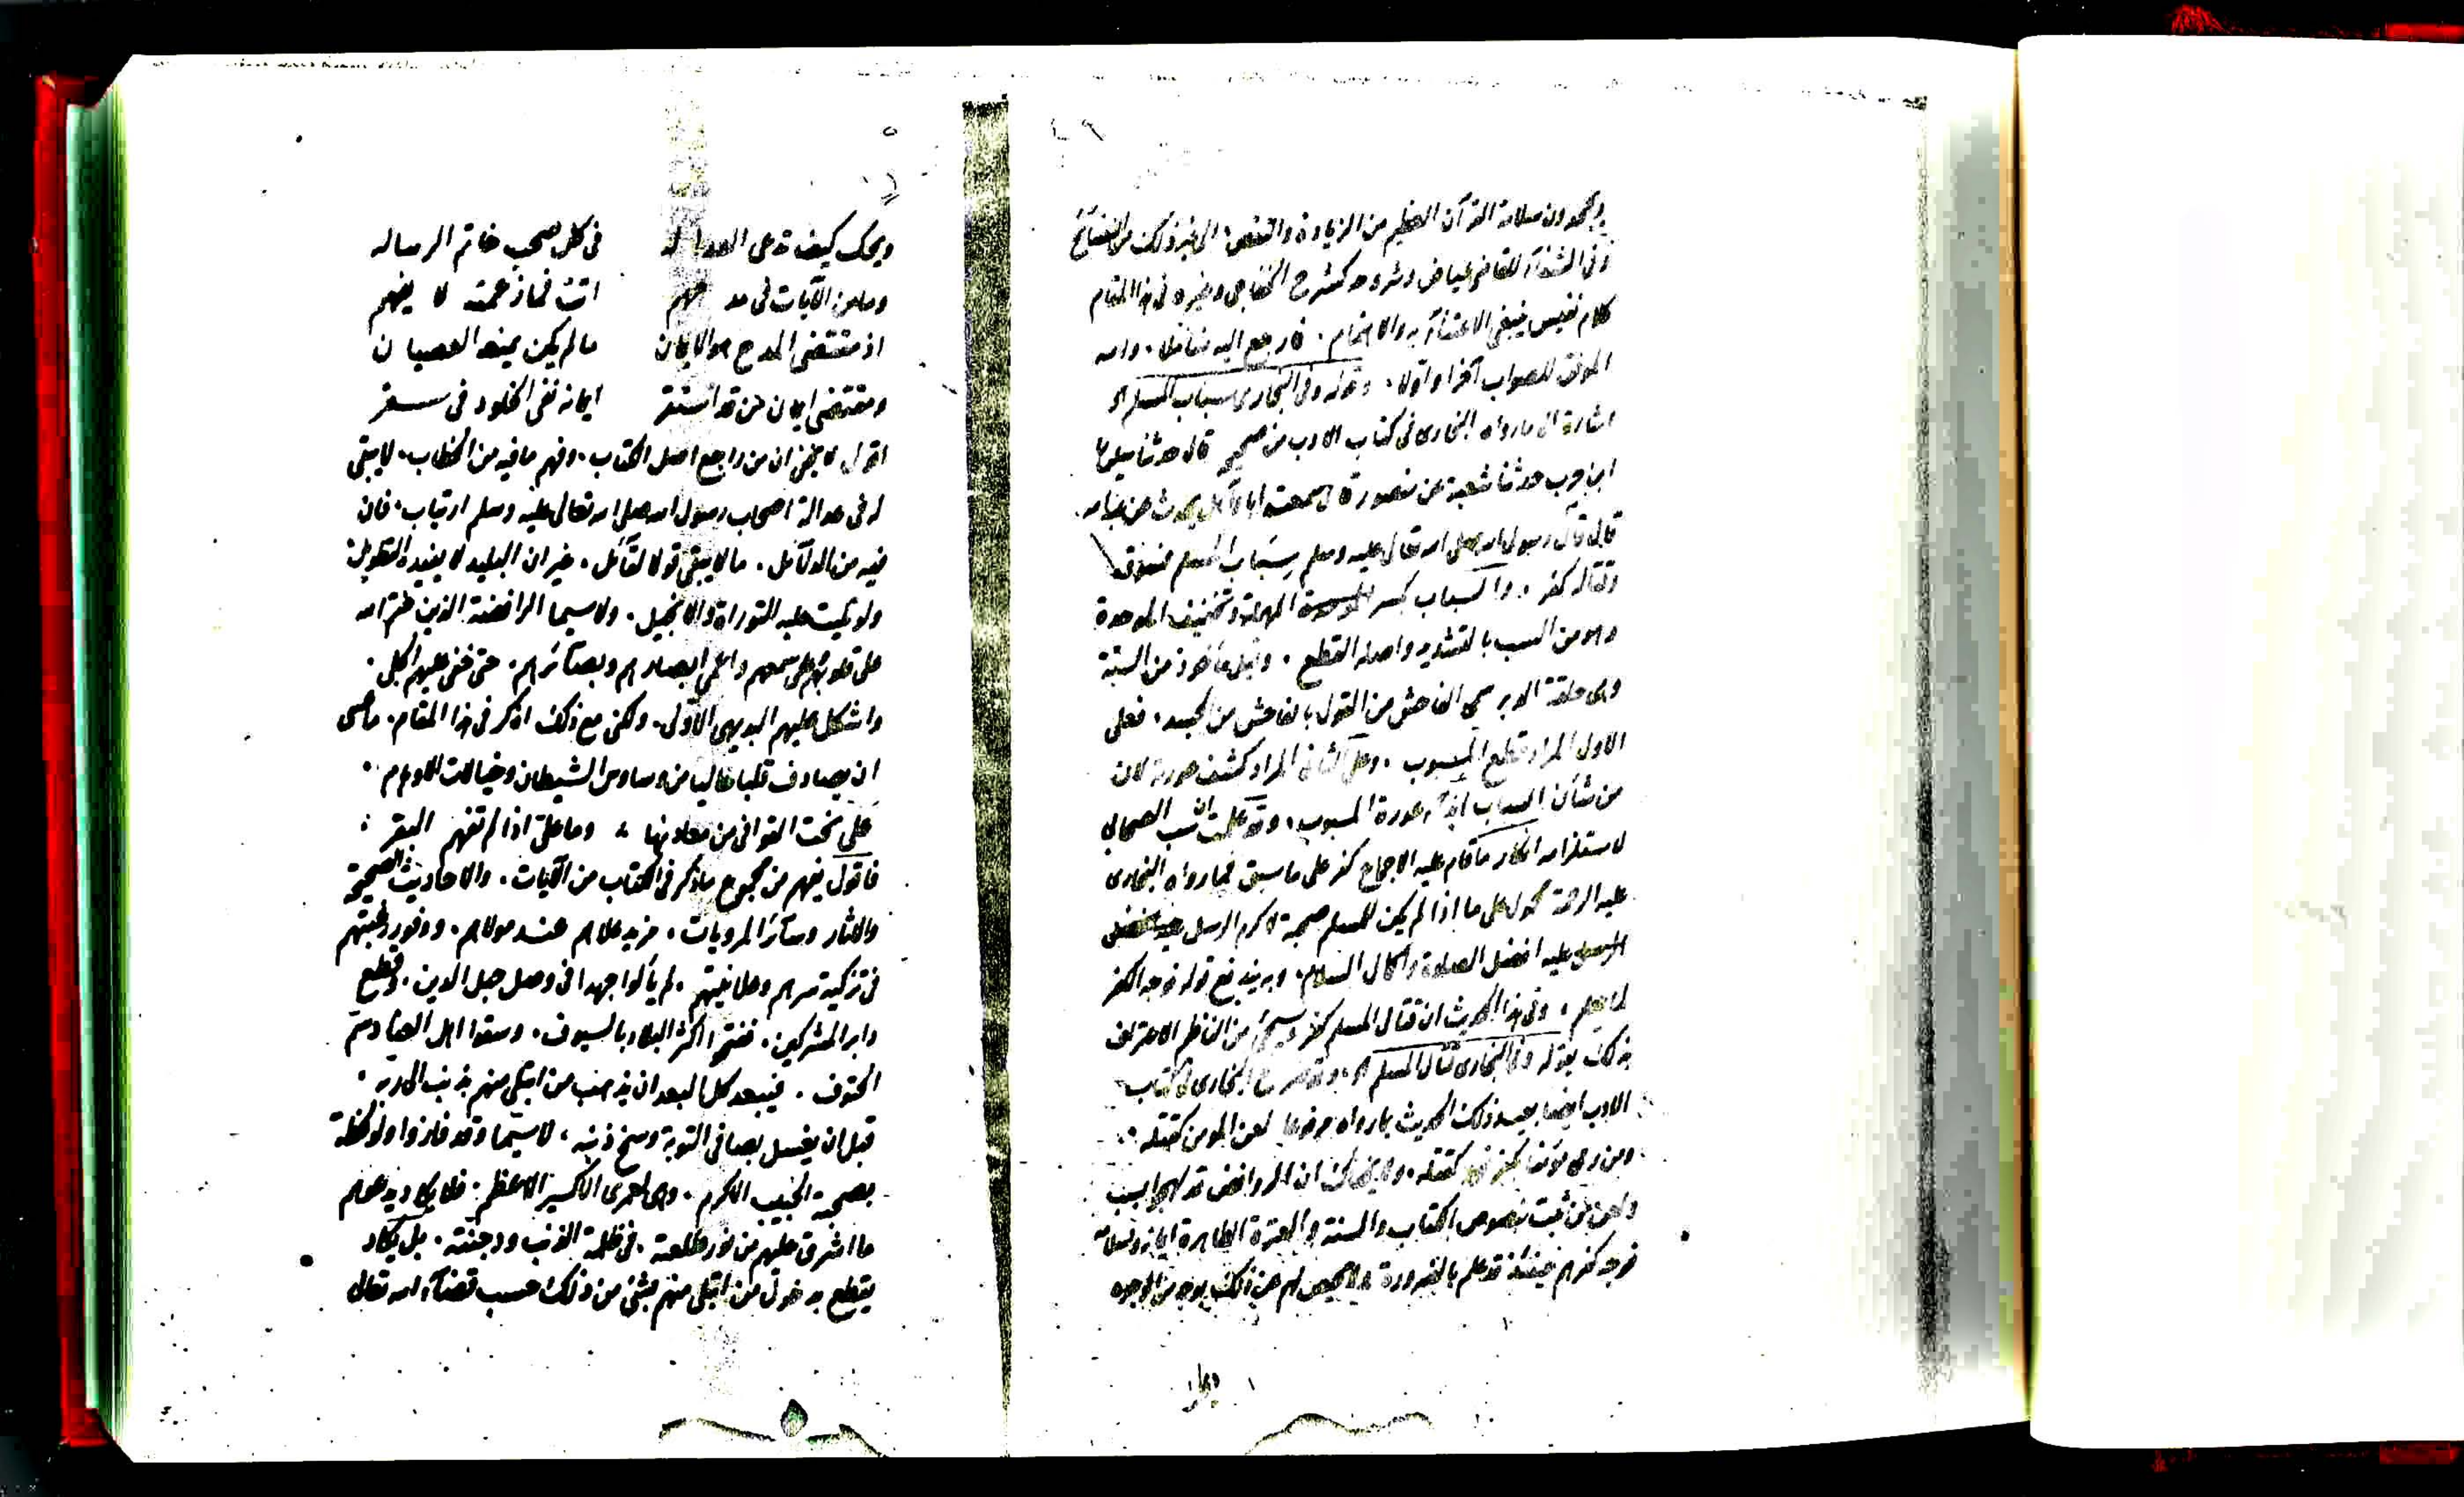 ٤٩
ويجحدون سلامة القرآن العظيم من الزيادة والنقص الى غير ذلك من القبائح
وفى الشفآء للقاضى عياض وشروحه كشرح الخفاجى وغيره فى هذا المقام
كلام نفيس ينبغى الاعتنآء به والاهتمام. فارجع اليه متأملا. والله
الموفق للصواب آخرا واولا. وقوله وفى البخارى سباب المسلم الخ
اشارة الى مارواه البخارى فى كتاب الادب من صحيحه قال حدثنا سليمان
ابن حرب حدثنا شعبة عن منصور قال سمعت ابا وآئل يحدث عن عبد الله
قال قال رسول الله صلى الله تعالى عليه وسلم سِبَاب المسلم فسوق
وقتاله كفر. والسباب بكسر المهملة وتخفيف الموحدة
وهو من السب بالتشديد واصله القطع. وقيل مأخوذ من السبة
وهى حلقة الدبر سمى الفاحش من القول بالفاحش من الجسد. فعلى
الاول المراد قطع المسبوب. وعلى الثانى المراد كشف عورته لان
من شأن الساب ابدآء عورة المسبوب. وقد علمت ان سب الصحابى
لاستلزامه انكار ماقام عليه الاجماع كفر على ما سبق فما رواه البخارى
عليه الرحمة محمول على ما اذا لم يكن للمسلم صحبة لاكرم الرسل
عليه افضل الصلاة واكمال السلام. وبه يندفع قوله فوجه الكفر
لم يعلم. وفى هذا الحديث ان قتال المسلم كفر وسيجئ من الناظم الاعتراف
بذلك بقوله وفى البخارى قتال المسلم الخ وقد صرح البخارى فى كتاب
الادب ايضا بعيد ذلك الحديث بما رواه مرفوعا لعن المؤمن كقتله.
ومن رمى مؤمنا بكفر فهو كقتله. ولا يخفاك ان الروافض قد لهجوا بسب
ولعن من ثبت بنصوص الكتاب والسنة والعترة الطاهرة ايمانه واسلامه
فوجه كفرهم حينئذ قد علم بالضرورة ولا محيص لهم عن ذلك بوجه من الوجوه
ويحك
٥
ويحك كيف تدعى العداله في كل صحب خاتم الرساله
وما من الآيات فى مدحهم اتت فما زعمت لا يفهم
اذ مقتضى المدح هو الايمان مالم يكن يمنعه العصيان
ومقتضى ايمان من قد استقر ايمانه نفى الخلود فى سقر
اقول لا يخفى ان من راجع اصل الكتاب. وفهم ما فيه من الخطاب. لا يبقى
له فى عدالة اصحاب رسول الله صلى الله تعالى عليه وسلم ارتياب. فان
فيه من الدلآئل. ما لا يبقى قولا لقآئل. غير ان البليد لا يفيده التطويل
ولو تليت عليه التوراة والانجيل. ولا سيما الرافضة الذين ختم الله
على قلوبهم وعلى سمعهم واعمى ابصارهم وبصآئرهم. حتى خفى عليهم الجلى.
واشكل عليهم البديهى الاولى. ولكن مع ذلك اذكر فى هذا المقام. ما عسى
ان يصادف قلبا خاليا من وساوس الشيطان وخيالات الاوهام.
على نحت القوافى من معادنها وما على اذا لم تفهم البقر
فاقول يفهم من مجموع ما ذكر فى الكتاب من الآيات. والاحاديث الصحيحة
والآثار وسآئر المرويات. مزيد علاهم عند مولاهم. ووفور رغبتهم
فى تزكية سرهم وعلانيتهم. لم يألوا جهدا فى وصل حبل الدين. وقطع
دابر المشركين. ففتحوا اكثر البلاد بالسيوف. وسقوا اهل العناد سم
الحتوف. فيبعد كل البعد ان يذهب من ابتلى منهم بذنب الى ربه.
قبل ان يغسل بصافى التوبة وسخ ذنبه. لا سيما وقد فازوا ولو لحظة
بصحبة الحبيب الاكرم. وهى لعمرى الاكسير الاعظم. فلا يكاد يدعهم
ما اشرق عليهم من نور طلعته. فى ظلمة الذنب ودجنته. بل يكاد
يقطع بدخول من ابتلى منهم بشئ من ذلك حسب قضآء الله تعالى